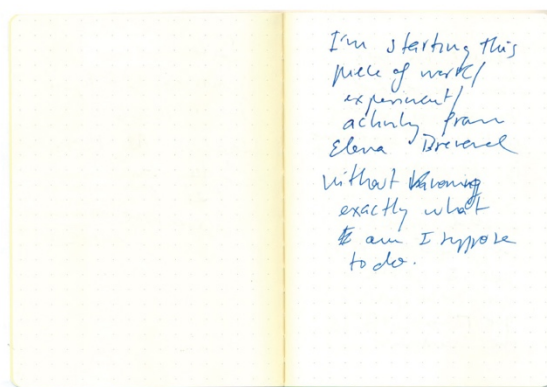 I'm starting this
piece of work/
experiment/
activity from
Elena
without knowing
exactly what
am I suppose
to do.